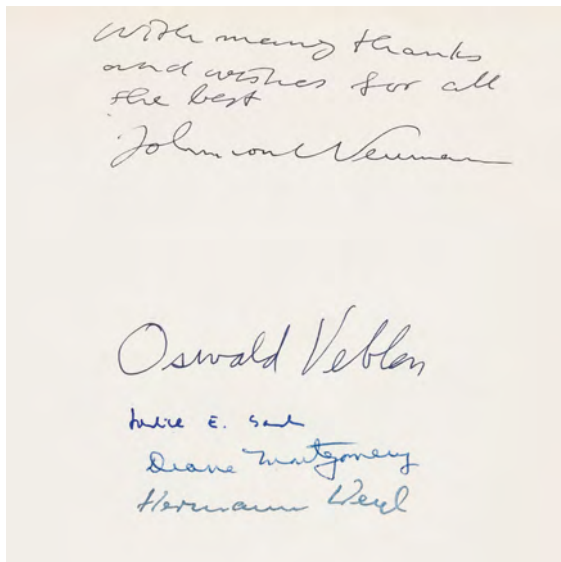 With many thanks
and wishes for all
the best
John von Neumann
Oswald Veblen
E.
Deane Montgomery
Hermann Weyl